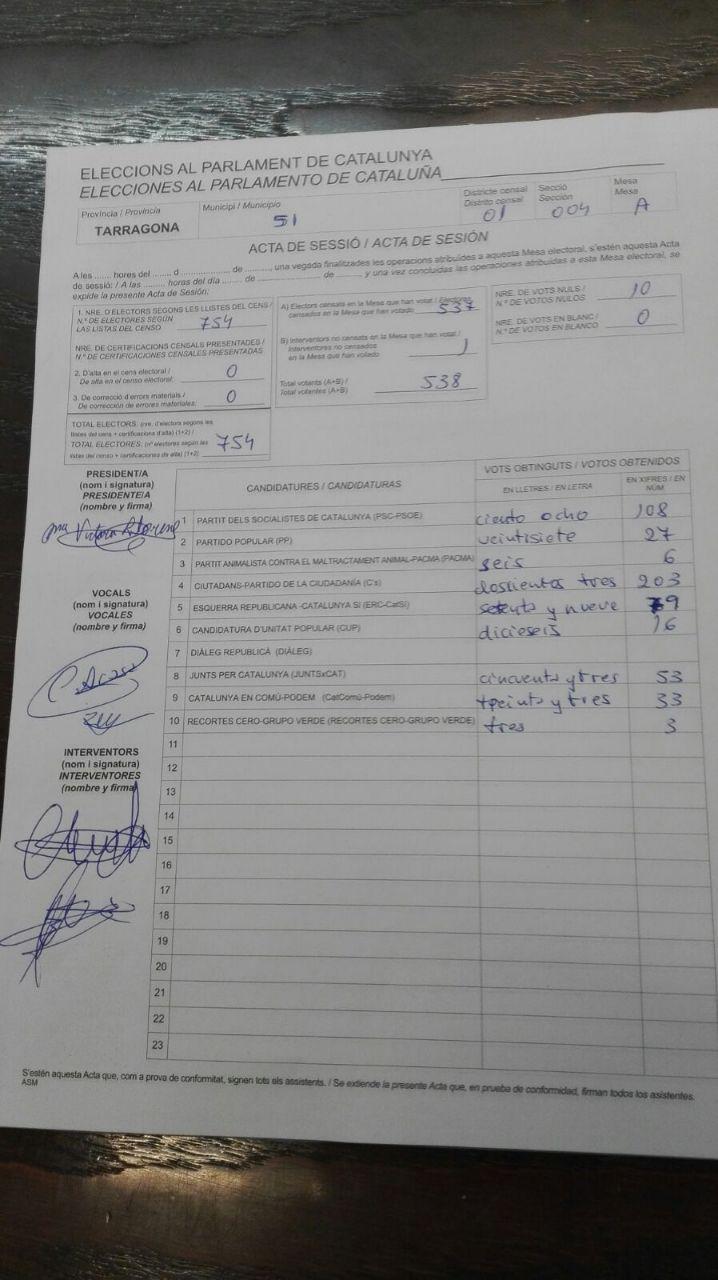 ELECCIONS AL PARLAMENT DE CATALUNYA
ELECCIONES AL PARLAMENTO DE CATALUÑA
Província / Provincia
TARRAGONA
Municipi / Municipio
51
Districte censal
Distrito censal
01
Secció
Sección
004
Mesa
Mesa
A
ACTA DE SESSIÓ / ACTA DE SESIÓN
A les ....... hores del ...... d ................ de .........., una vegada finalitzades les operacions atribuïdes a aquesta Mesa electoral, s'estén aquesta Acta
de sessió: / A las ........ horas del día ...... de ................ de .......... y una vez concluidas las operaciones atribuidas a esta Mesa electoral, se
expide la presente Acta de Sesión:
1. NRE. D'ELECTORS SEGONS LES LLISTES DEL CENS /
N.º DE ELECTORES SEGÚN
LAS LISTAS DEL CENSO
754
NRE. DE CERTIFICACIONS CENSALS PRESENTADES /
N.º DE CERTIFICACIONES CENSALES PRESENTADAS
2. D'alta en el cens electoral /
De alta en el censo electoral:
0
3. De correcció d'errors materials /
De corrección de errores materiales:
0
TOTAL ELECTORS: (nre. d'electors segons les
llistes del cens + certificacions d'alta) (1+2) /
TOTAL ELECTORES: (nº electores según las
listas del censo + certificaciones de alta) (1+2)
754
A) Electors censats en la Mesa que han votat / Electores
censados en la Mesa que han votado
537
B) Interventors no censats en la Mesa que han votat /
Interventores no censados
en la Mesa que han votado
1
Total votants (A+B) /
Total votantes (A+B)
538
NRE. DE VOTS NULS /
N.º DE VOTOS NULOS
10
NRE. DE VOTS EN BLANC /
N.º DE VOTOS EN BLANCO
0
PRESIDENT/A
(nom i signatura)
PRESIDENTE/A
(nombre y firma)
VOCALS
(nom i signatura)
VOCALES
(nombre y firma)
INTERVENTORS
(nom i signatura)
INTERVENTORES
(nombre y firma)
CANDIDATURES / CANDIDATURAS
VOTS OBTINGUTS / VOTOS OBTENIDOS
EN LLETRES / EN LETRA
EN XIFRES / EN
NÚM
1 PARTIT DELS SOCIALISTES DE CATALUNYA (PSC-PSOE) ciento ocho 108
2 PARTIDO POPULAR (PP) veintisiete 27
3 PARTIT ANIMALISTA CONTRA EL MALTRACTAMENT ANIMAL-PACMA (PACMA) seis 6
4 CIUTADANS-PARTIDO DE LA CIUDADANÍA (C's) doscientos tres 203
5 ESQUERRA REPUBLICANA -CATALUNYA SÍ (ERC-CatSí) setenta y nueve 79
6 CANDIDATURA D'UNITAT POPULAR (CUP) dicieseis 16
7 DIÀLEG REPUBLICÀ (DIÀLEG)
8 JUNTS PER CATALUNYA (JUNTSxCAT) cincuenta y tres 53
9 CATALUNYA EN COMÚ-PODEM (CatComú-Podem) treinta y tres 33
10 RECORTES CERO-GRUPO VERDE (RECORTES CERO-GRUPO VERDE) tres 3
11
12
13
14
15
16
17
18
19
20
21
22
23
S'estén aquesta Acta que, com a prova de conformitat, signen tots els assistents. / Se extiende la presente Acta que, en prueba de conformidad, firman todos los asistentes.
ASM